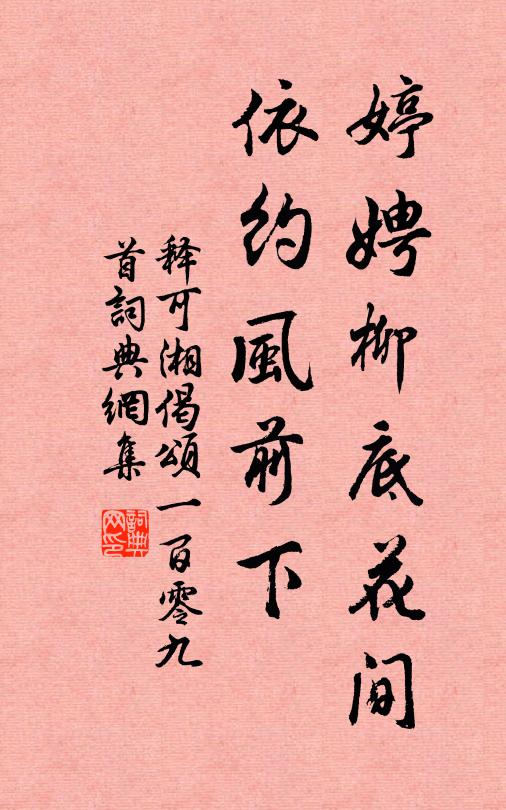 婷娉柳底花间
依约風前下
释可湘偈頌一百零九
首詞典網集
詞典
网印